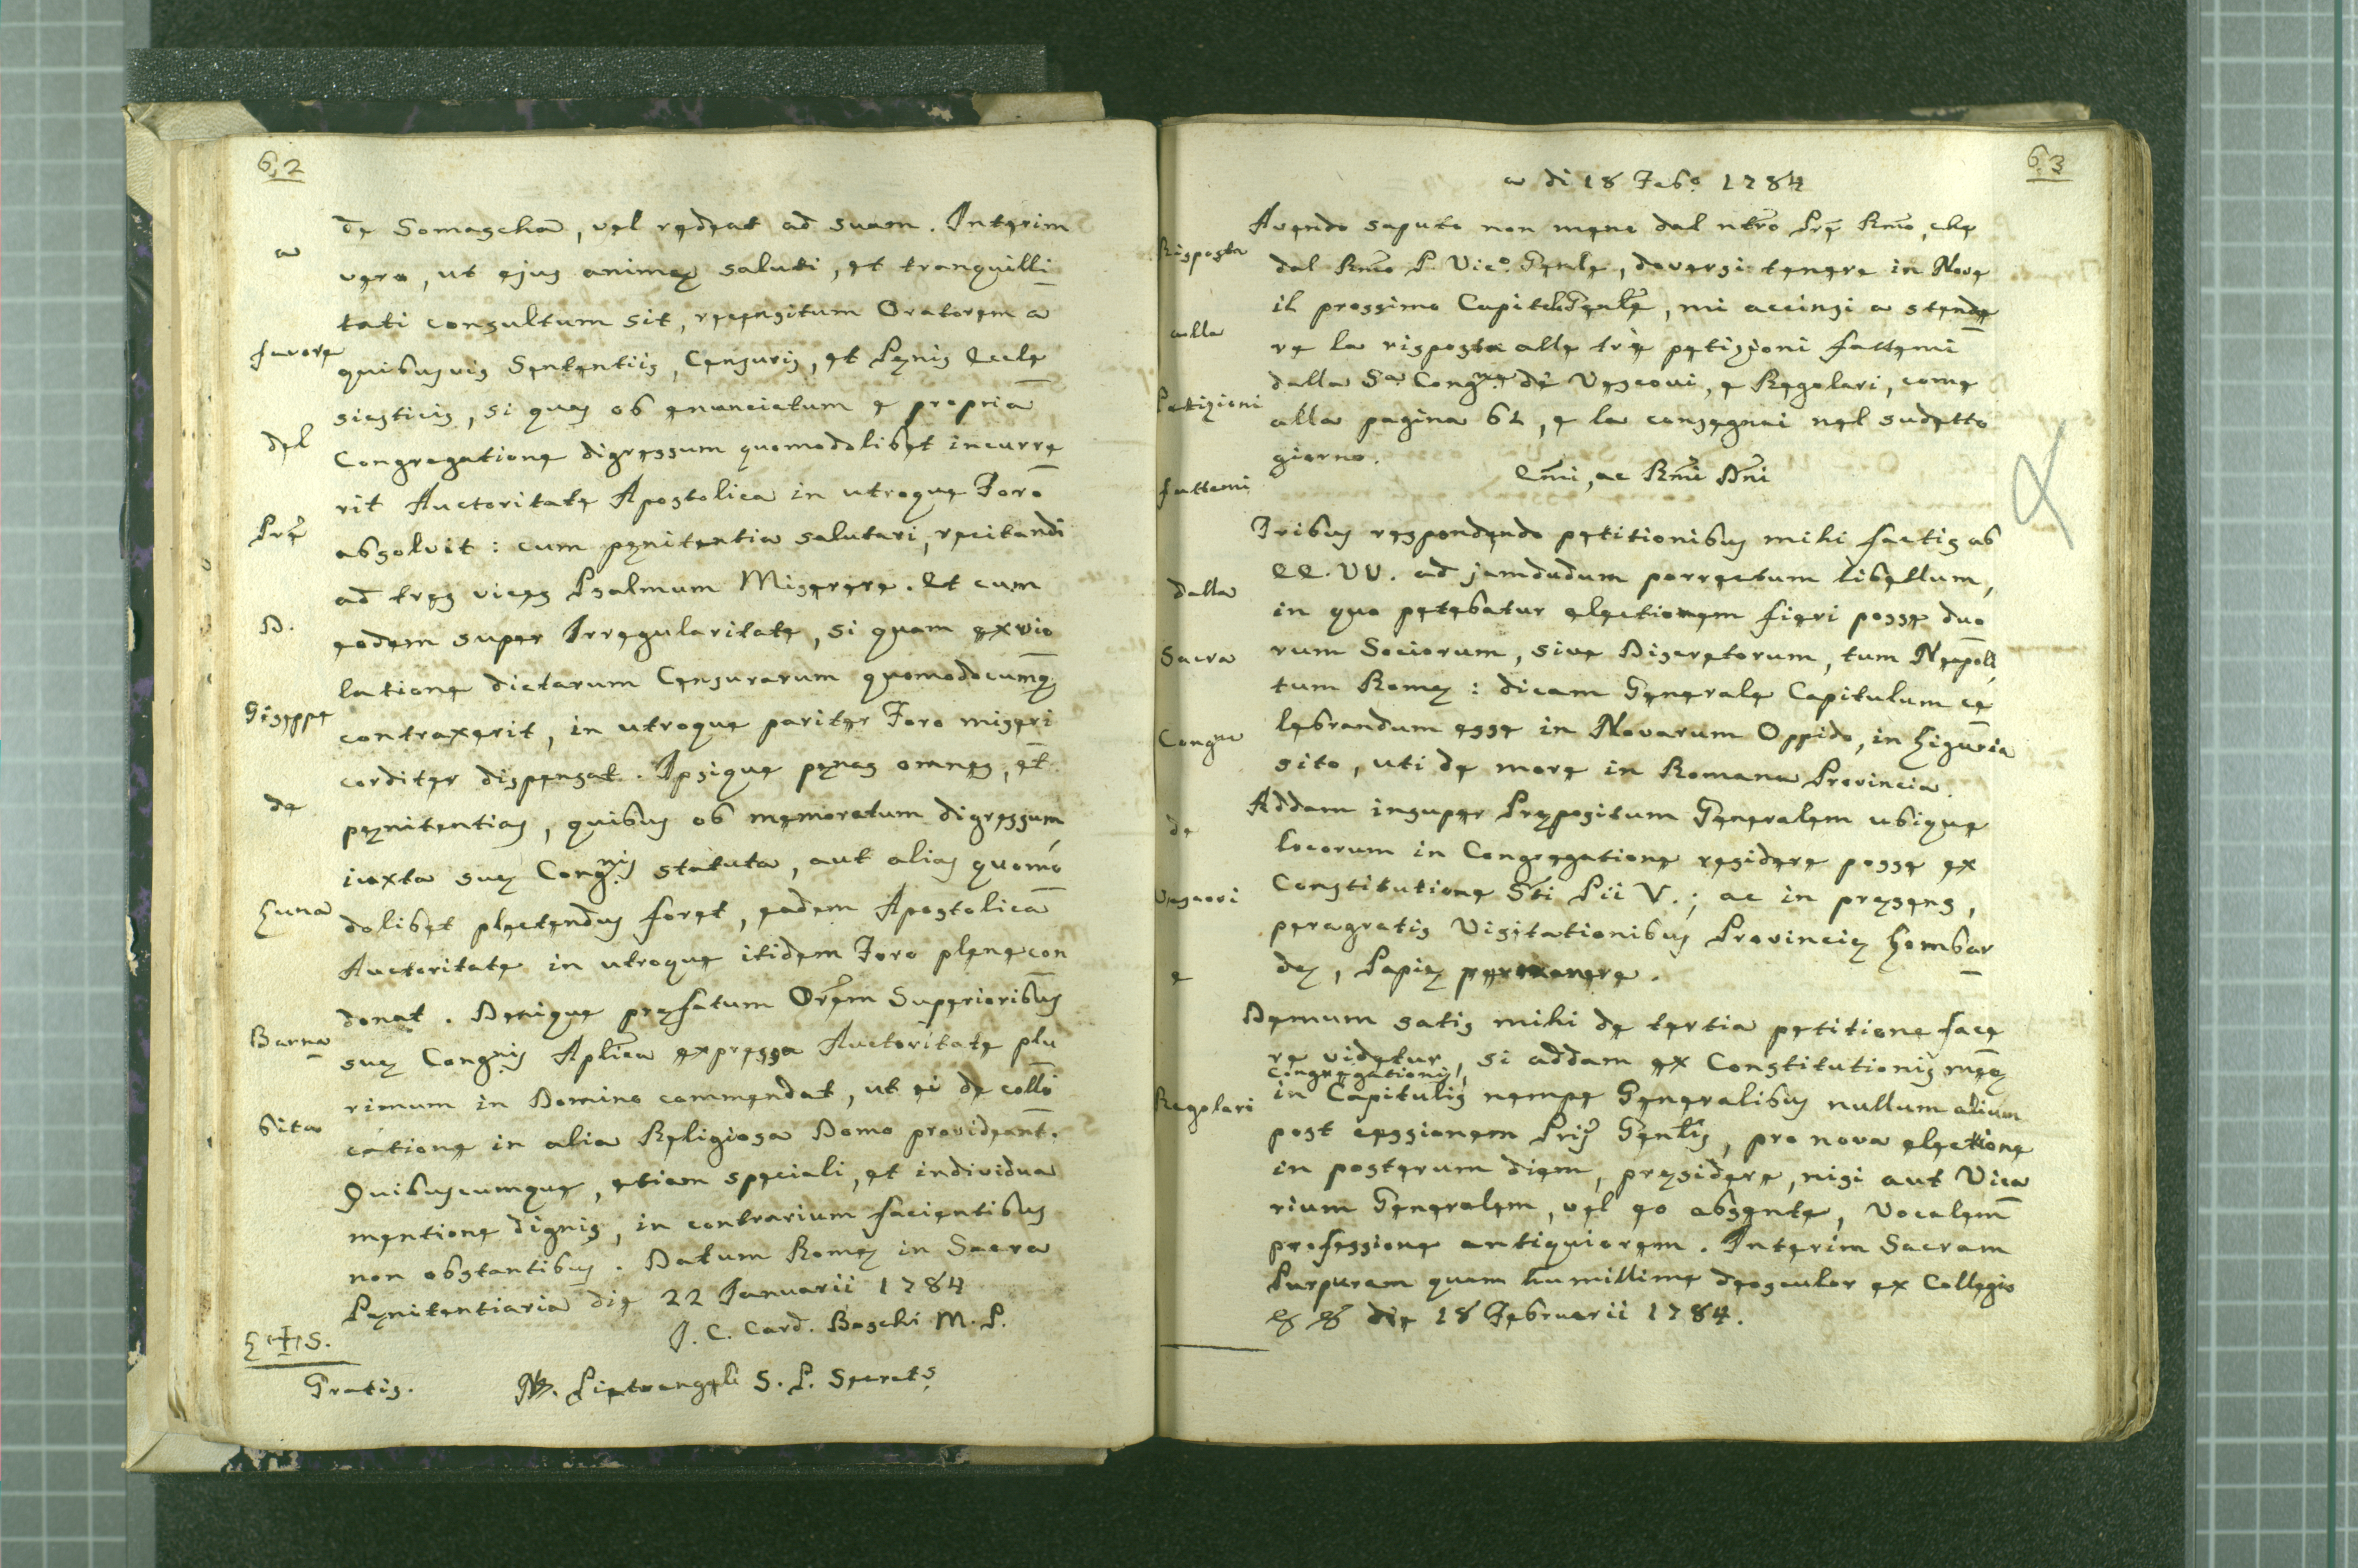 62
de Somascha, vel redeat ad suam. Interim
vero, ut ejus animę saluti, et tranquilli
tati consultum sit, recensitum Oratorem a
quibusvis Sententiis, Censuris, et Pęnis Eccle
siasticis, si quas ob enunciatum e propria
Congregatione digressum quomodolibet incurre
rit Auctoritate Apostolica in utroque Foro
absolvit: cum pęnitentia salutari, recitandi
ad tres vices Psalmum Miserere. Et cum
eodem super Irregularitate, si quam ex vio
latione dictarum Censurarum quomodocumq;
contraxerit, in utroque pariter Foro miseri
corditer dispensat. Ipsique pęnas omnes, et
pęnitentias, quibus ob memoratum digressum,
iuxta suę Congnis statuta, aut alias quomo
dolibet plectendus foret, eadem Apostolica
Auctoritate in utroque itidem Foro plene con
donat. Denique pręfatum Orem Superioribus
suę Congnis Aplica expressa Auctoritate plu
rimum in Domino commendat, ut ei de collo
catione in alia Religiosa Domo provideant.
Quibuscumque, etiam speciali, et individua
mentione dignis, in contrarium facientibus
non obstantibus. Datum Romę in Sacra
Pęnitentiaria die 22 Ianuarii 1784
I. C. Card. Boschi M. P.
L + S.
Gratis.
Pietrangeli S. P. Secrets
a
favore
del
Pre
D.
Giseppe
de
Luna
Barna
bita
63
a di 18 Febo 1784
Avendo saputo non meno dal ntro Pre Rmo, che
dal Rmo P. Vico. Genle, doversi tenere in Nove
il prossimo Capitolo Genle, mi accinsi a stende
re la risposta alle trè petizioni fattemi
dalla Sa Congne di Vescovi, e Regolari, come
alla pagina 61, e la consegnai nel sudetto
giorno.
Emi, ac Rmi Dni
Tribus respondendo petitionibus mihi factis ab
EE. VV. ad jamdudum porrectum libellum,
in quo petebatur electionem fieri posse duo
rum Sociorum, sive Discretorum, tum Neapoli,
tum Romę: dicam Generale Capitulum ce
lebrandum esse in Novarum Oppido, in Liguria
sito, uti de more in Romana Provincia.
Addam insuper Prępositum Generalem ubique
locorum in Congregatione residere posse ex
Constitutione Sti Pii V.; ac in pręsens,
peragratis Visitationibus Provincię Lombar
dę, Papię permanere.
Demum satis mihi de tertia petitione face
re videtur, si addam ex Constitutionis męę
Congregationis,
in Capitulis nempe Generalibus nullum alium
post cessionem Prij Genlis, pro nova electione
in posterum diem, pręsidere, nisi aut Vica
rium Generalem, vel eo absente, Vocalem
professione antiquiorem. Interim Sacram
Purpuram quam humillime deosculor ex Collegio
& & die 18 Februarii 1784.
Risposta
alla
Petizioni
fattemi
dalla
Sacra
Congne
de
Vescovi
e
Regolari